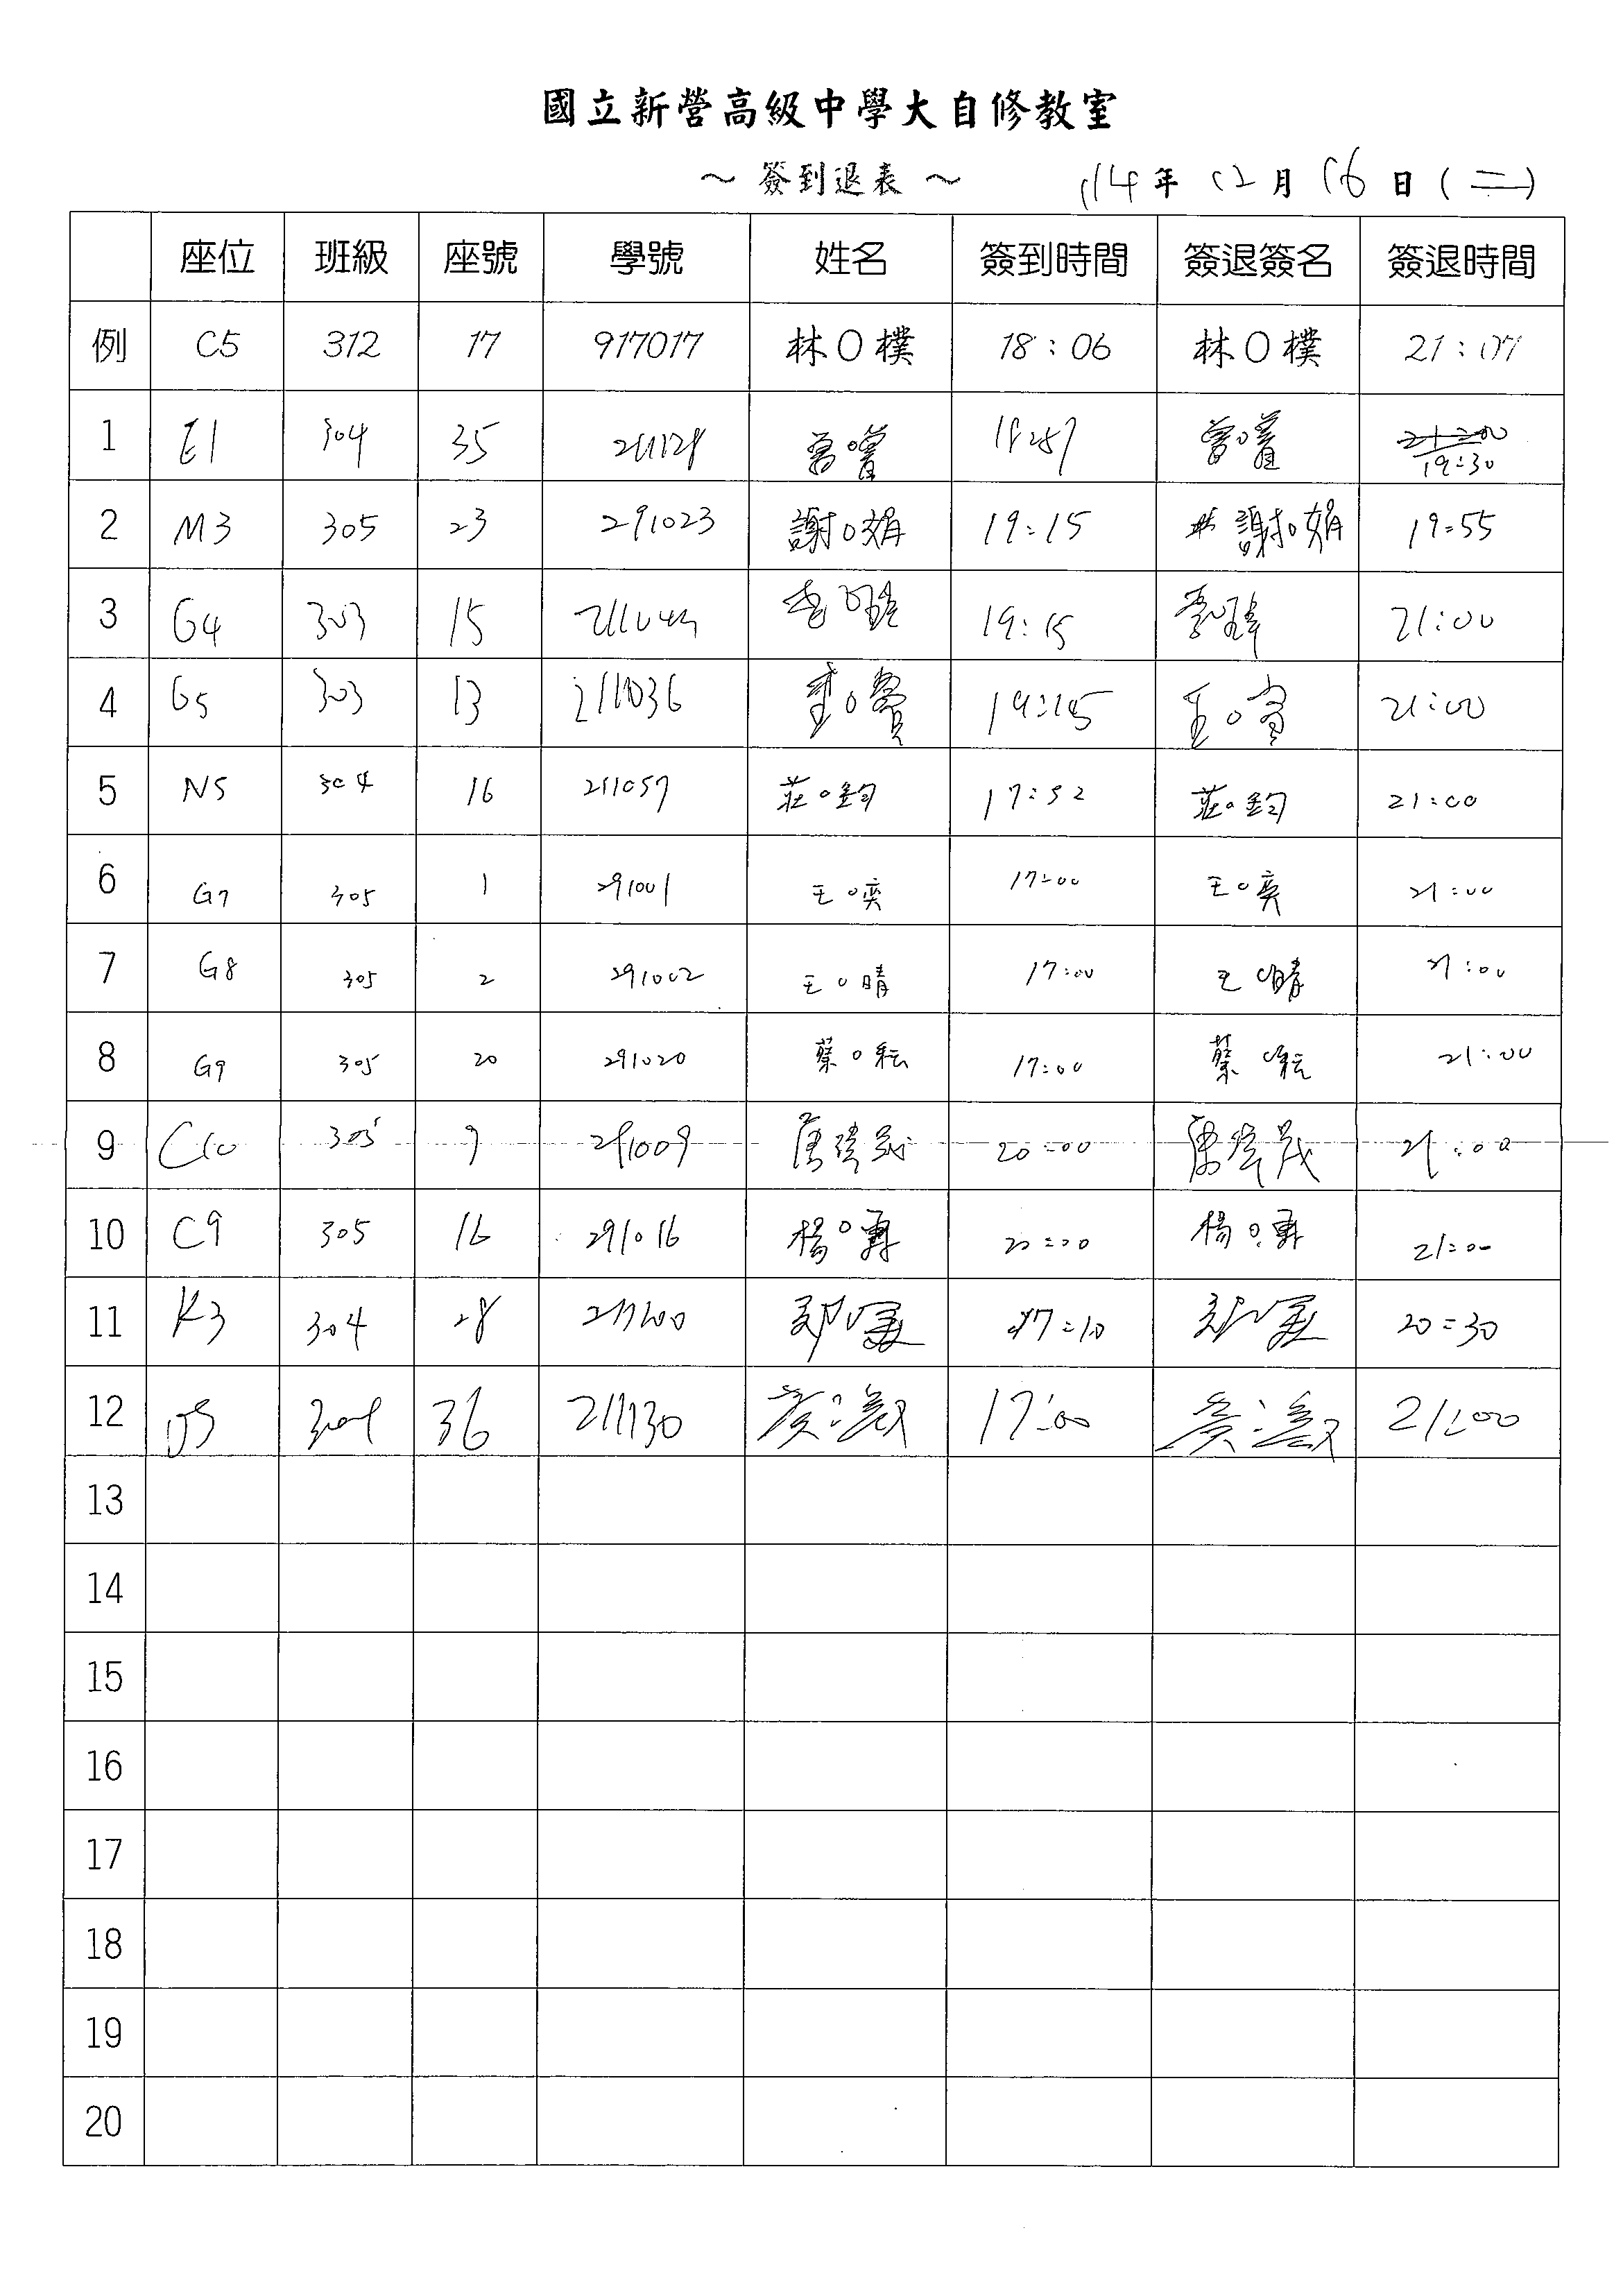 國立新營高級中學大自修教室
～ 簽到退表 ～ 114年 12月 16日(二)
座位 班級 座號 學號 姓名 簽到時間 簽退簽名 簽退時間
例 C5 312 17 917017 林O樸 18:06 林O樸 21:07
1 E1 304 35 211128 曾O 曾O 21:00 19:30
2 M3 305 23 291023 謝O娟 19:15 謝O娟 19:55
3 G4 303 15 李O 19:15 李O 21:00
4 G5 303 13 211036 O 19:15 O 21:00
5 N5 304 16 211057 莊O鈞 17:52 莊O鈞 21:00
6 G7 305 1 291001 王O奕 17:00 王O奕 21:00
7 G8 305 2 291002 王O晴 17:00 王O晴 21:00
8 G9 305 20 291020 蔡O耘 17:00 蔡O耘 21:00
9 C10 305 9 291009 20:00 21:00
10 C9 305 16 291016 楊O 20:00 楊O 21:00
11 K3 304 28 211100 17:10 20:30
12 304 36 211130 黃 17:00 黃 21:00
13
14
15
16
17
18
19
20